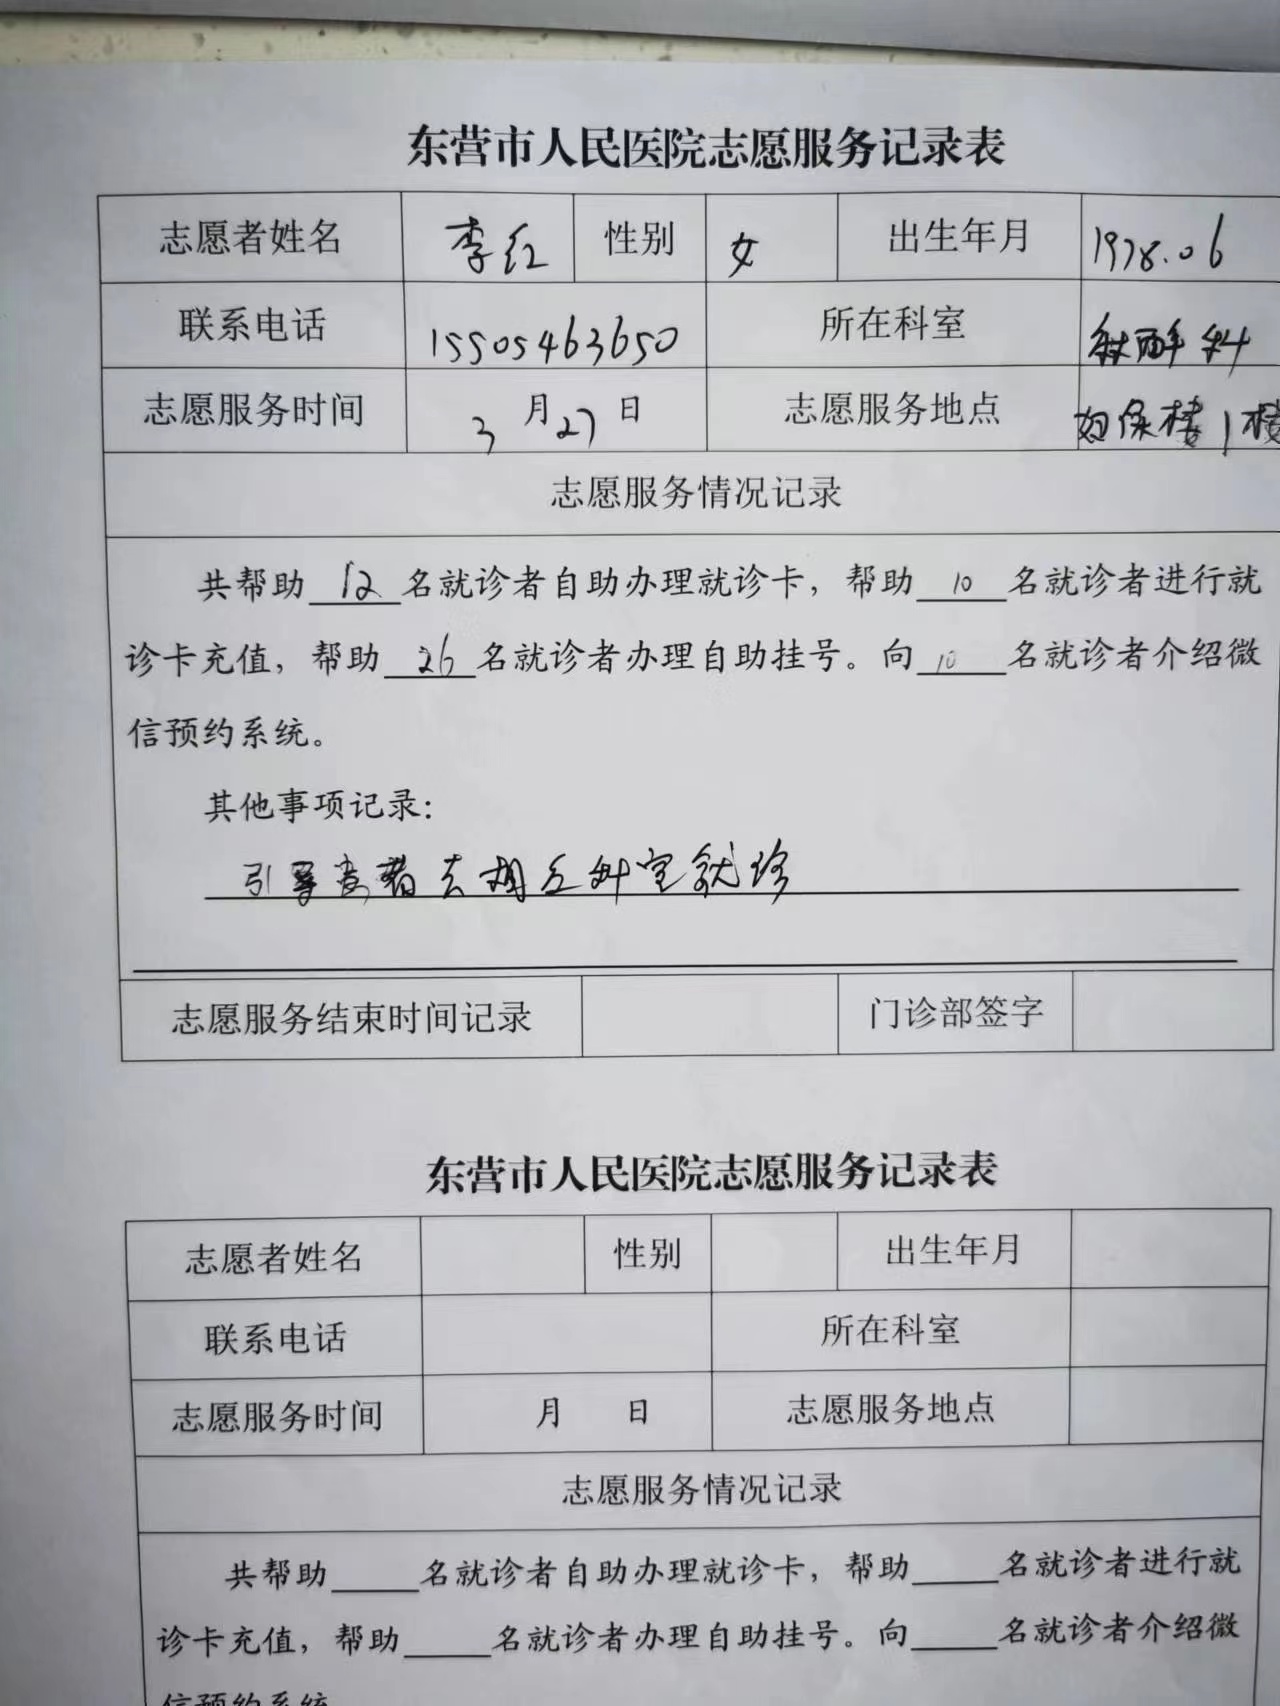 东营市人民医院志愿服务记录表
志愿者姓名 李红 性别 女 出生年月 1978.06
联系电话 15505463650 所在科室 麻醉科
志愿服务时间 3月27日 志愿服务地点 妇保楼1楼
志愿服务情况记录
共帮助12名就诊者自助办理就诊卡，帮助10名就诊者进行就
诊卡充值，帮助26名就诊者办理自助挂号。向10名就诊者介绍微
信预约系统。
其他事项记录：
引导患者去相应科室就诊
志愿服务结束时间记录 门诊部签字
东营市人民医院志愿服务记录表
志愿者姓名 性别 出生年月
联系电话 所在科室
志愿服务时间 月 日 志愿服务地点
志愿服务情况记录
共帮助____名就诊者自助办理就诊卡，帮助____名就诊者进行就
诊卡充值，帮助____名就诊者办理自助挂号。向____名就诊者介绍微
信预约系统